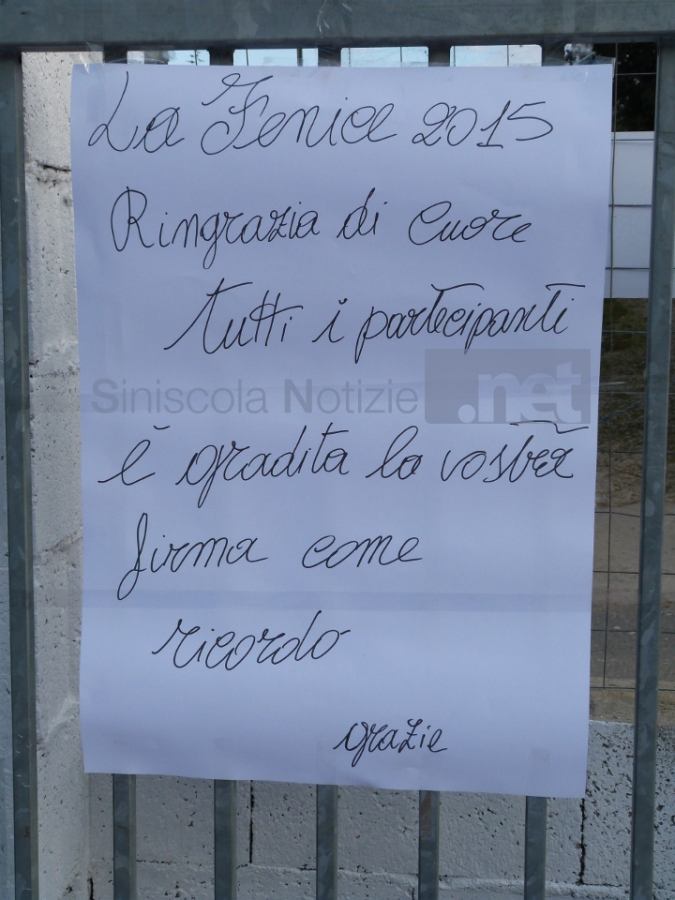 La Fenice 2015
Ringrazia di cuore
tutti i partecipanti
Siniscola Notizie .net
è gradita la vostra
firma come
ricordo
grazie